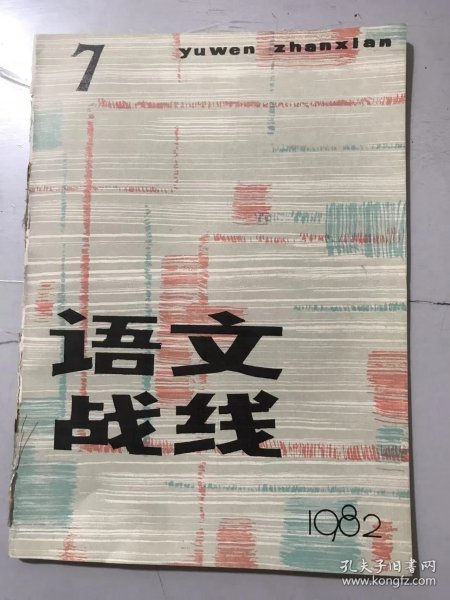 7
yuwen zhanxian
语文
战线
1982
孔夫子旧书网
www.kongfz.com